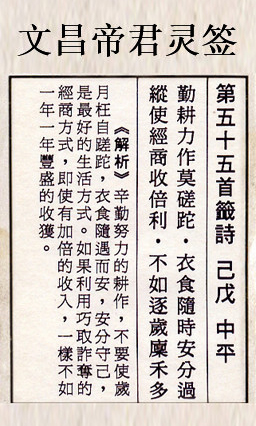 文昌帝君灵签
第五十五首籤詩 己戊 中平
勤耕力作莫蹉跎・衣食隨時安分過
縱使經商收倍利・不如逐歲廩禾多
《解析》辛勤努力的耕作，不要使歲
月枉自蹉跎，衣食隨遇而安，安分守己，
是最好的生活方式。如果利用巧取詐奪的
經商方式，即使有加倍的收入，一樣不如
一年一年豐盛的收獲。